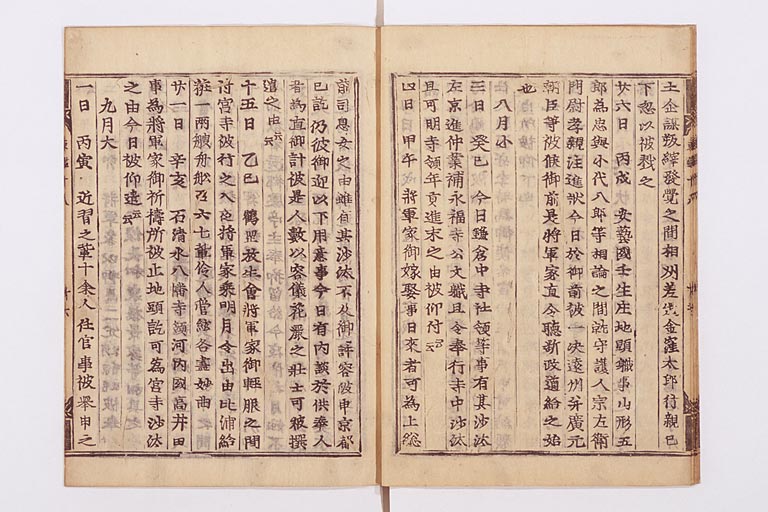 土企謀叛縡發覺之間相州差遣金窪太郎行親已
下忽以被戮之
廿六日 丙戌 安藝國壬生庄地頭職事山形五
郎為忠與小代八郎等相論之間就守護人宗左衛
門尉孝親注進狀今日於御前被一决遠州并廣元
朝臣等被候御前是將軍家直令聽新政道給之始
也
八月小
三日 癸巳 今日鎌倉中寺社領等事有其沙汰
左京進仲業補永福寺公文職且令奉行寺中沙汰
且可明寺領年貢進未之由被仰付云云
四日 甲午 將軍家御嫁娶事日來者可為上総
前司息女之由雖有其沙汰不及御許容被申京都
已訖仍被御迎以下用意事今日有内談於供奉人
者為直御計被是人數以容儀花麗之壯士可被撰
遣之由云云
十五日 乙巳 鶴岡放生會將軍家御輕服之間
付宮寺被行之入夜將軍家乘明月令出由比浦給
粧一両艘舟舩召六七輩伶人管絃各盡妙曲
廿一日 辛亥 石清水八幡寺領河内國高井田
事為將軍家御祈禱所被止地頭訖可為宮寺沙汰
之由今日被仰遣云云
九月大
一日 丙寅 近習之輩十余人任官事被舉申之